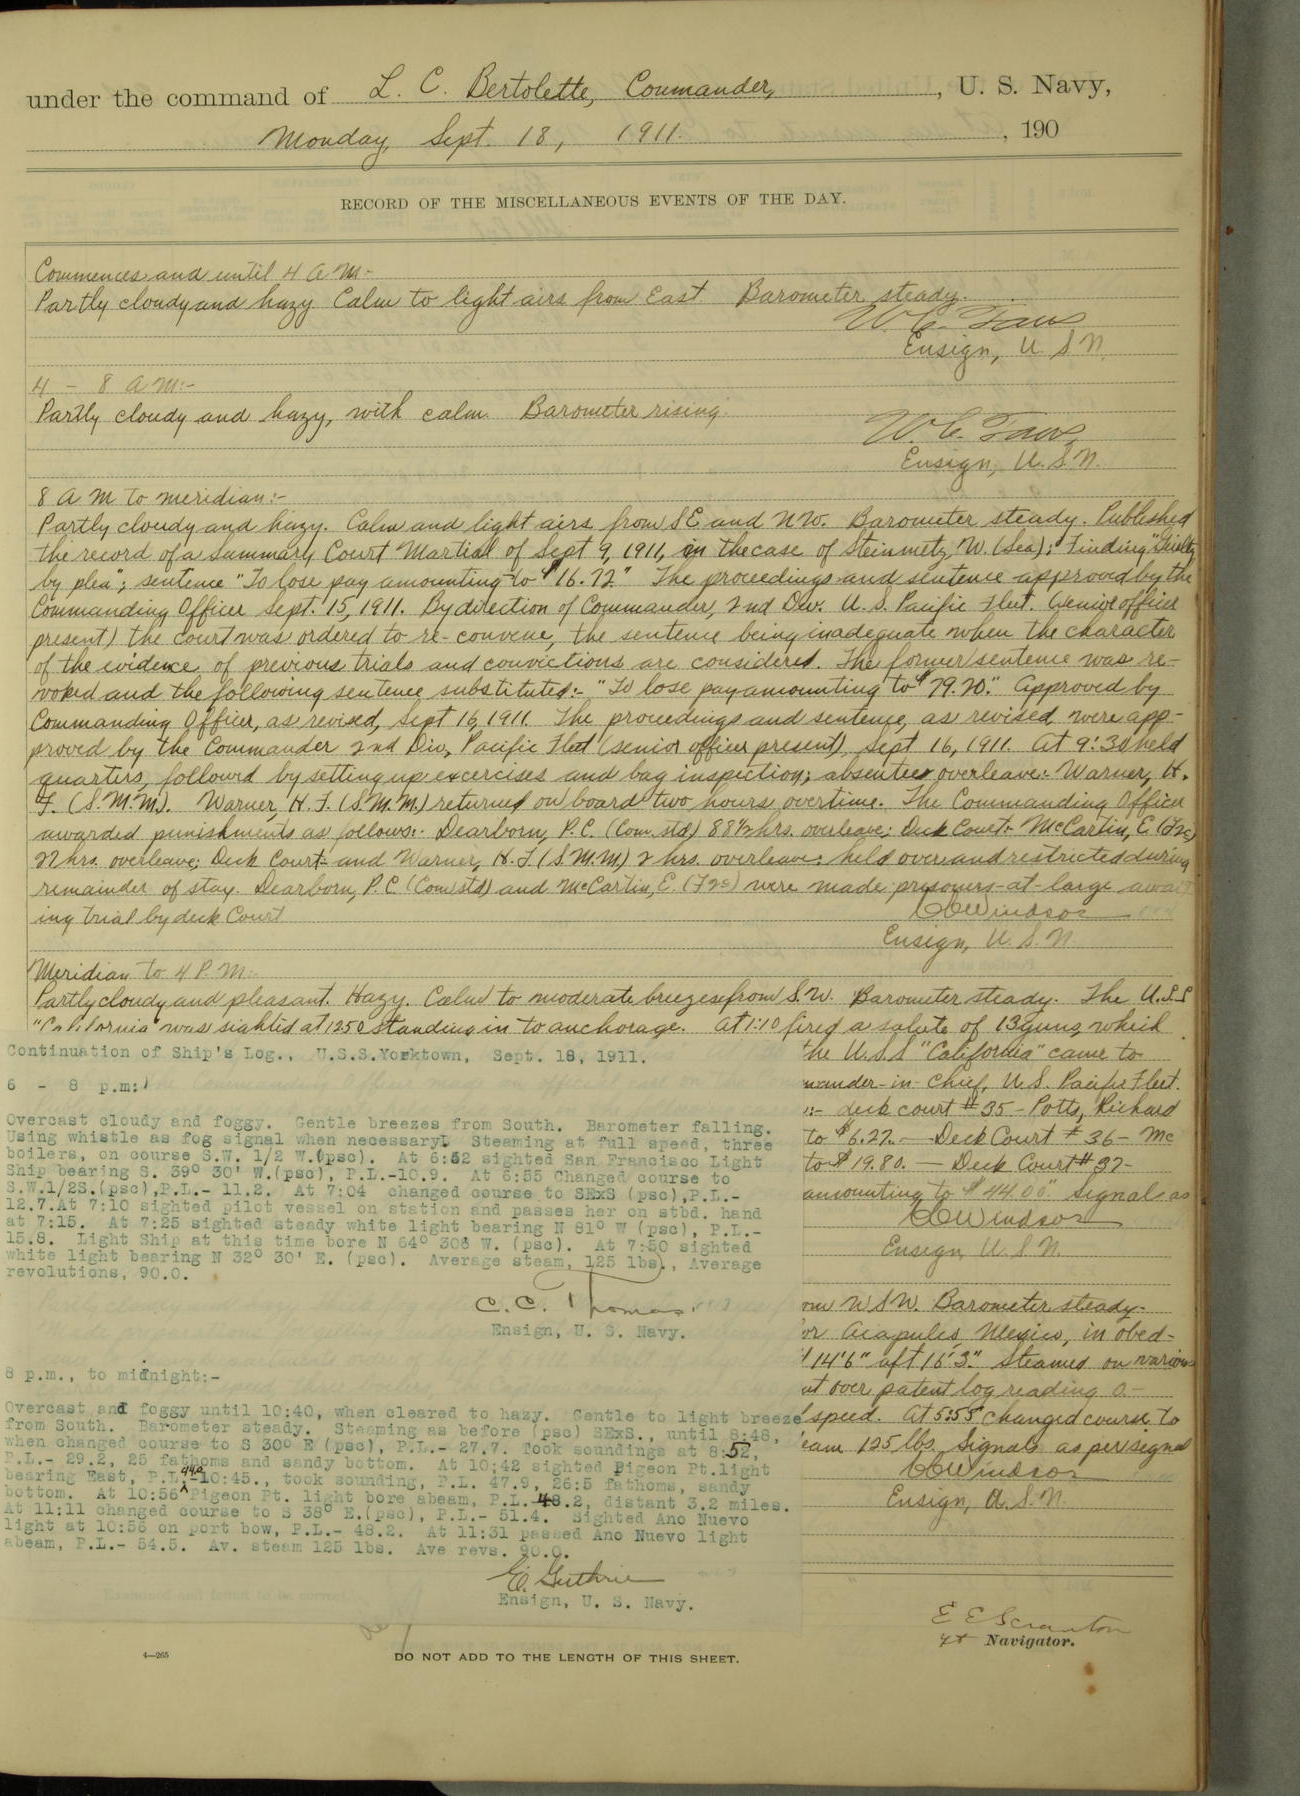 under the command of L. C. Bertolette, Commander, , U. S. Navy,
Monday, Sept. 18, 1911. , 190
RECORD OF THE MISCELLANEOUS EVENTS OF THE DAY.
Commences and until 4 A M:-
Partly cloudy and hazy Calm to light airs from East. Barometer steady.
W. C.
Ensign, U S N.
4 - 8 A M:-
Partly cloudy and hazy, with calm. Barometer rising.
W. C.
Ensign, U. S. N.
8 A M to meridian:-
Partly cloudy and hazy. Calm and light airs from SE and NW. Barometer steady. Published
the record of a Summary Court Martial of Sept 9, 1911, in the case of Steinmetz, W. (Sea); Finding "Guilty
by plea"; sentence "To lose pay amounting to $16.72" The proceedings and sentence approved by the
Commanding Officer Sept. 15, 1911. By direction of Commander, 2nd Div. U. S. Pacific Fleet. (senior officer
present) the court was ordered to re-convene, the sentence being inadequate when the character
of the evidence of previous trials and convictions are considered. The former sentence was re-
voked and the following sentence substituted:- "To lose pay amounting to $29.20." Approved by
Commanding Officer, as revised, Sept 16, 1911. The proceedings and sentence, as revised were app-
proved by the Commander 2nd Div, Pacific Fleet (senior officer present), Sept 16, 1911. At 9:30 held
quarters, followed by setting up excercises and bag inspection; absentees overleave:- Warner, H.
F. (S.M.M.). Warner, H. F. (S.M.M.) returned on board two hours overtime. The Commanding Officer
awarded punishments as follows:- Dearborn, P.C. (Com. std) 88½ hrs. overleave; Deck Court:- McCartin, E (F2c)
22 hrs. overleave; Deck Court:- and Warner, H. F (S.M.M) 2 hrs. overleave: held over and restricted during
remainder of stay. Dearborn, P.C (Com std) and McCartin, E. (F2c) were made prisoners-at-large await
ing trial by deck Court
CC Windsor
Ensign, U. S. N
Meridian to 4 P. M:-
Partly cloudy and pleasant. Hazy. Calm to moderate breezes from S.W. Barometer steady. The U.S.S
"California" was sighted at 1250 standing in to anchorage. At 1:10 fired a salute of 13 guns which
the U.S.S "California" came to
mander-in-Chief, U. S. Pacific Fleet.
:- deck court #35 - Potts, Richard
to $6.27. — Deck Court #36 - Mc
to $19.80. — Deck Court #37-
amounting to $44.00" Signal as
CC Windsor
Ensign, U. S. N.
om WSW. Barometer steady-
or Acapulco, Mexico, in obed-
14'6" aft 16'3". Steamed on various
ut over patent log reading 0.-
speed. At 5:55 changed course to
eam 125 lbs. Signals as per signal
CC Windsor
Ensign, U. S. N.
Continuation of Ship's Log., U.S.S.Yorktown, Sept. 18, 1911.
6 - 8 p.m:
Overcast cloudy and foggy. Gentle breezes from South. Barometer falling.
Using whistle as fog signal when necessary. Steaming at full speed, three
boilers, on course S.W. 1/2 W.(psc). At 6:52 sighted San Francisco Light
Ship bearing S. 39º 30' W.(psc), P.L.-10.9. At 6:55 Changed course to
S.W.1/2S.(psc),P.L.- 11.2. At 7:04 changed course to SExS (psc),P.L.-
12.7.At 7:10 sighted pilot vessel on station and passes her on stbd. hand
at 7:15. At 7:25 sighted steady white light bearing N 81º W (psc), P.L.-
15.8. Light Ship at this time bore N 64º 30' W. (psc). At 7:50 sighted
white light bearing N 32º 30' E. (psc). Average steam, 125 lbs., Average
revolutions, 90.0.
C. C. Thomas
Ensign, U. S. Navy.
8 p.m., to midnight:-
Overcast and foggy until 10:40, when cleared to hazy. Gentle to light breeze
from South. Barometer steady. Steaming as before (psc) SExS., until 8:48,
when changed course to S 30º E (psc), P.L.- 27.7. Took soundings at 8:52,
P.L.- 29.2, 25 fathoms and sandy bottom. At 10:42 sighted Pigeon Pt.light
bearing East, P.L.-10:45., took sounding, P.L. 47.9, 26:5 fathoms, sandy
bottom. At 10:56 Pigeon Pt. light bore abeam, P.L.-48.2, distant 3.2 miles.
At 11:11 changed course to S 38º E.(psc), P.L.- 51.4. Sighted Ano Nuevo
light at 10:56 on port bow, P.L.- 48.2. At 11:31 passed Ano Nuevo light
abeam, P.L.- 54.5. Av. steam 125 lbs. Ave revs. 90.0.
E. Guthrie
Ensign, U. S. Navy.
E E Scranton
Navigator.
4—265
DO NOT ADD TO THE LENGTH OF THIS SHEET.